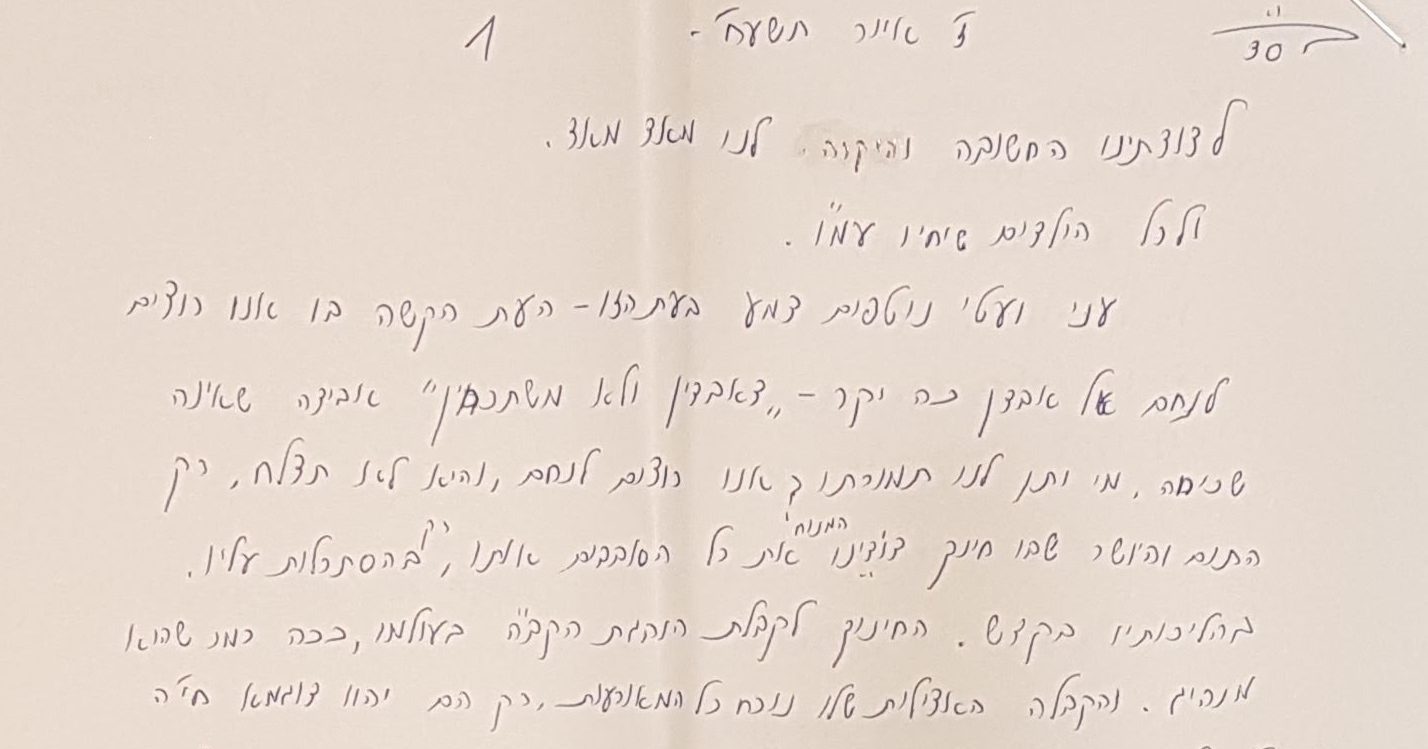 ז' אייר תשע"ח - 1
לדודתינו החשובה והיקרה. לנו מאד מאד.
ולכל הילדים שיחיו עמו"ש.
עני ועטי נוטפים דמע בעת הזו - העת הקשה בו אנו רוצים
לנחם על אבדן כה יקר - "דאבדין ולא משתכחין" אבידה שאינה
שכיחה, מי יתן לנו תמורתו? אנו רוצים לנחם, והיא לא תצלח, רק
התום והיושר שבו חינך דודינו המנוח' את כל הסובבים אותו, רק בהסתכלות עליו.
בהליכותיו בקדש. החינוך לקבלת הנהגת הקב"ה בעולמו, ככה כמו שהוא
מנהיג. והקבלה האצילית שלו נוכח כל המאורעות, רק הם יהוו דוגמא חי'ה